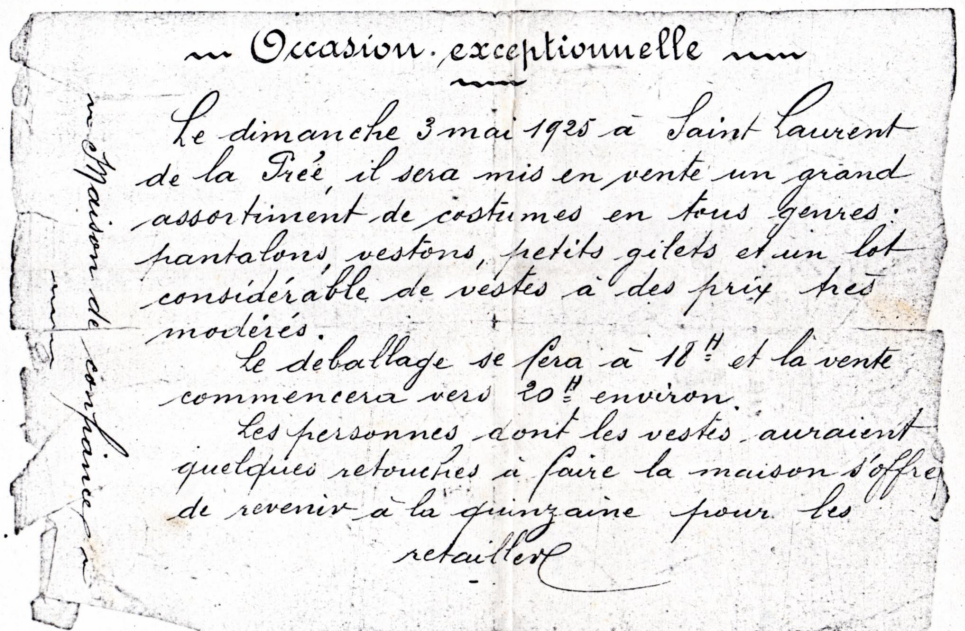 Occasion exceptionnelle
Le dimanche 3 mai 1925 à Saint Laurent
de la Préé, il sera mis en vente un grand
assortiment de costumes en tous genres.
pantalons, vestons, petits gilets et un lot
considérable de vestes à des prix très
modérés.
Le déballage se fera à 18H et la vente
commencera vers 20H environ.
Les personnes dont les vestes auraient
quelques retouches à faire la maison s'offre
de revenir à la quinzaine pour les
retailler
Maison de confiance